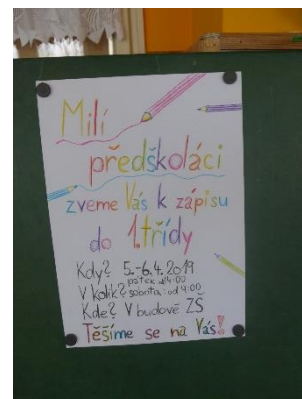 Milí
předškoláci
zveme Vás k zápisu
do 1.třídy
Kdy? 5.-6.4.2019
pátek od 14:00
V kolik? sobota: od 9:00
Kde? V budově ZŠ
Těšíme se na Vás!